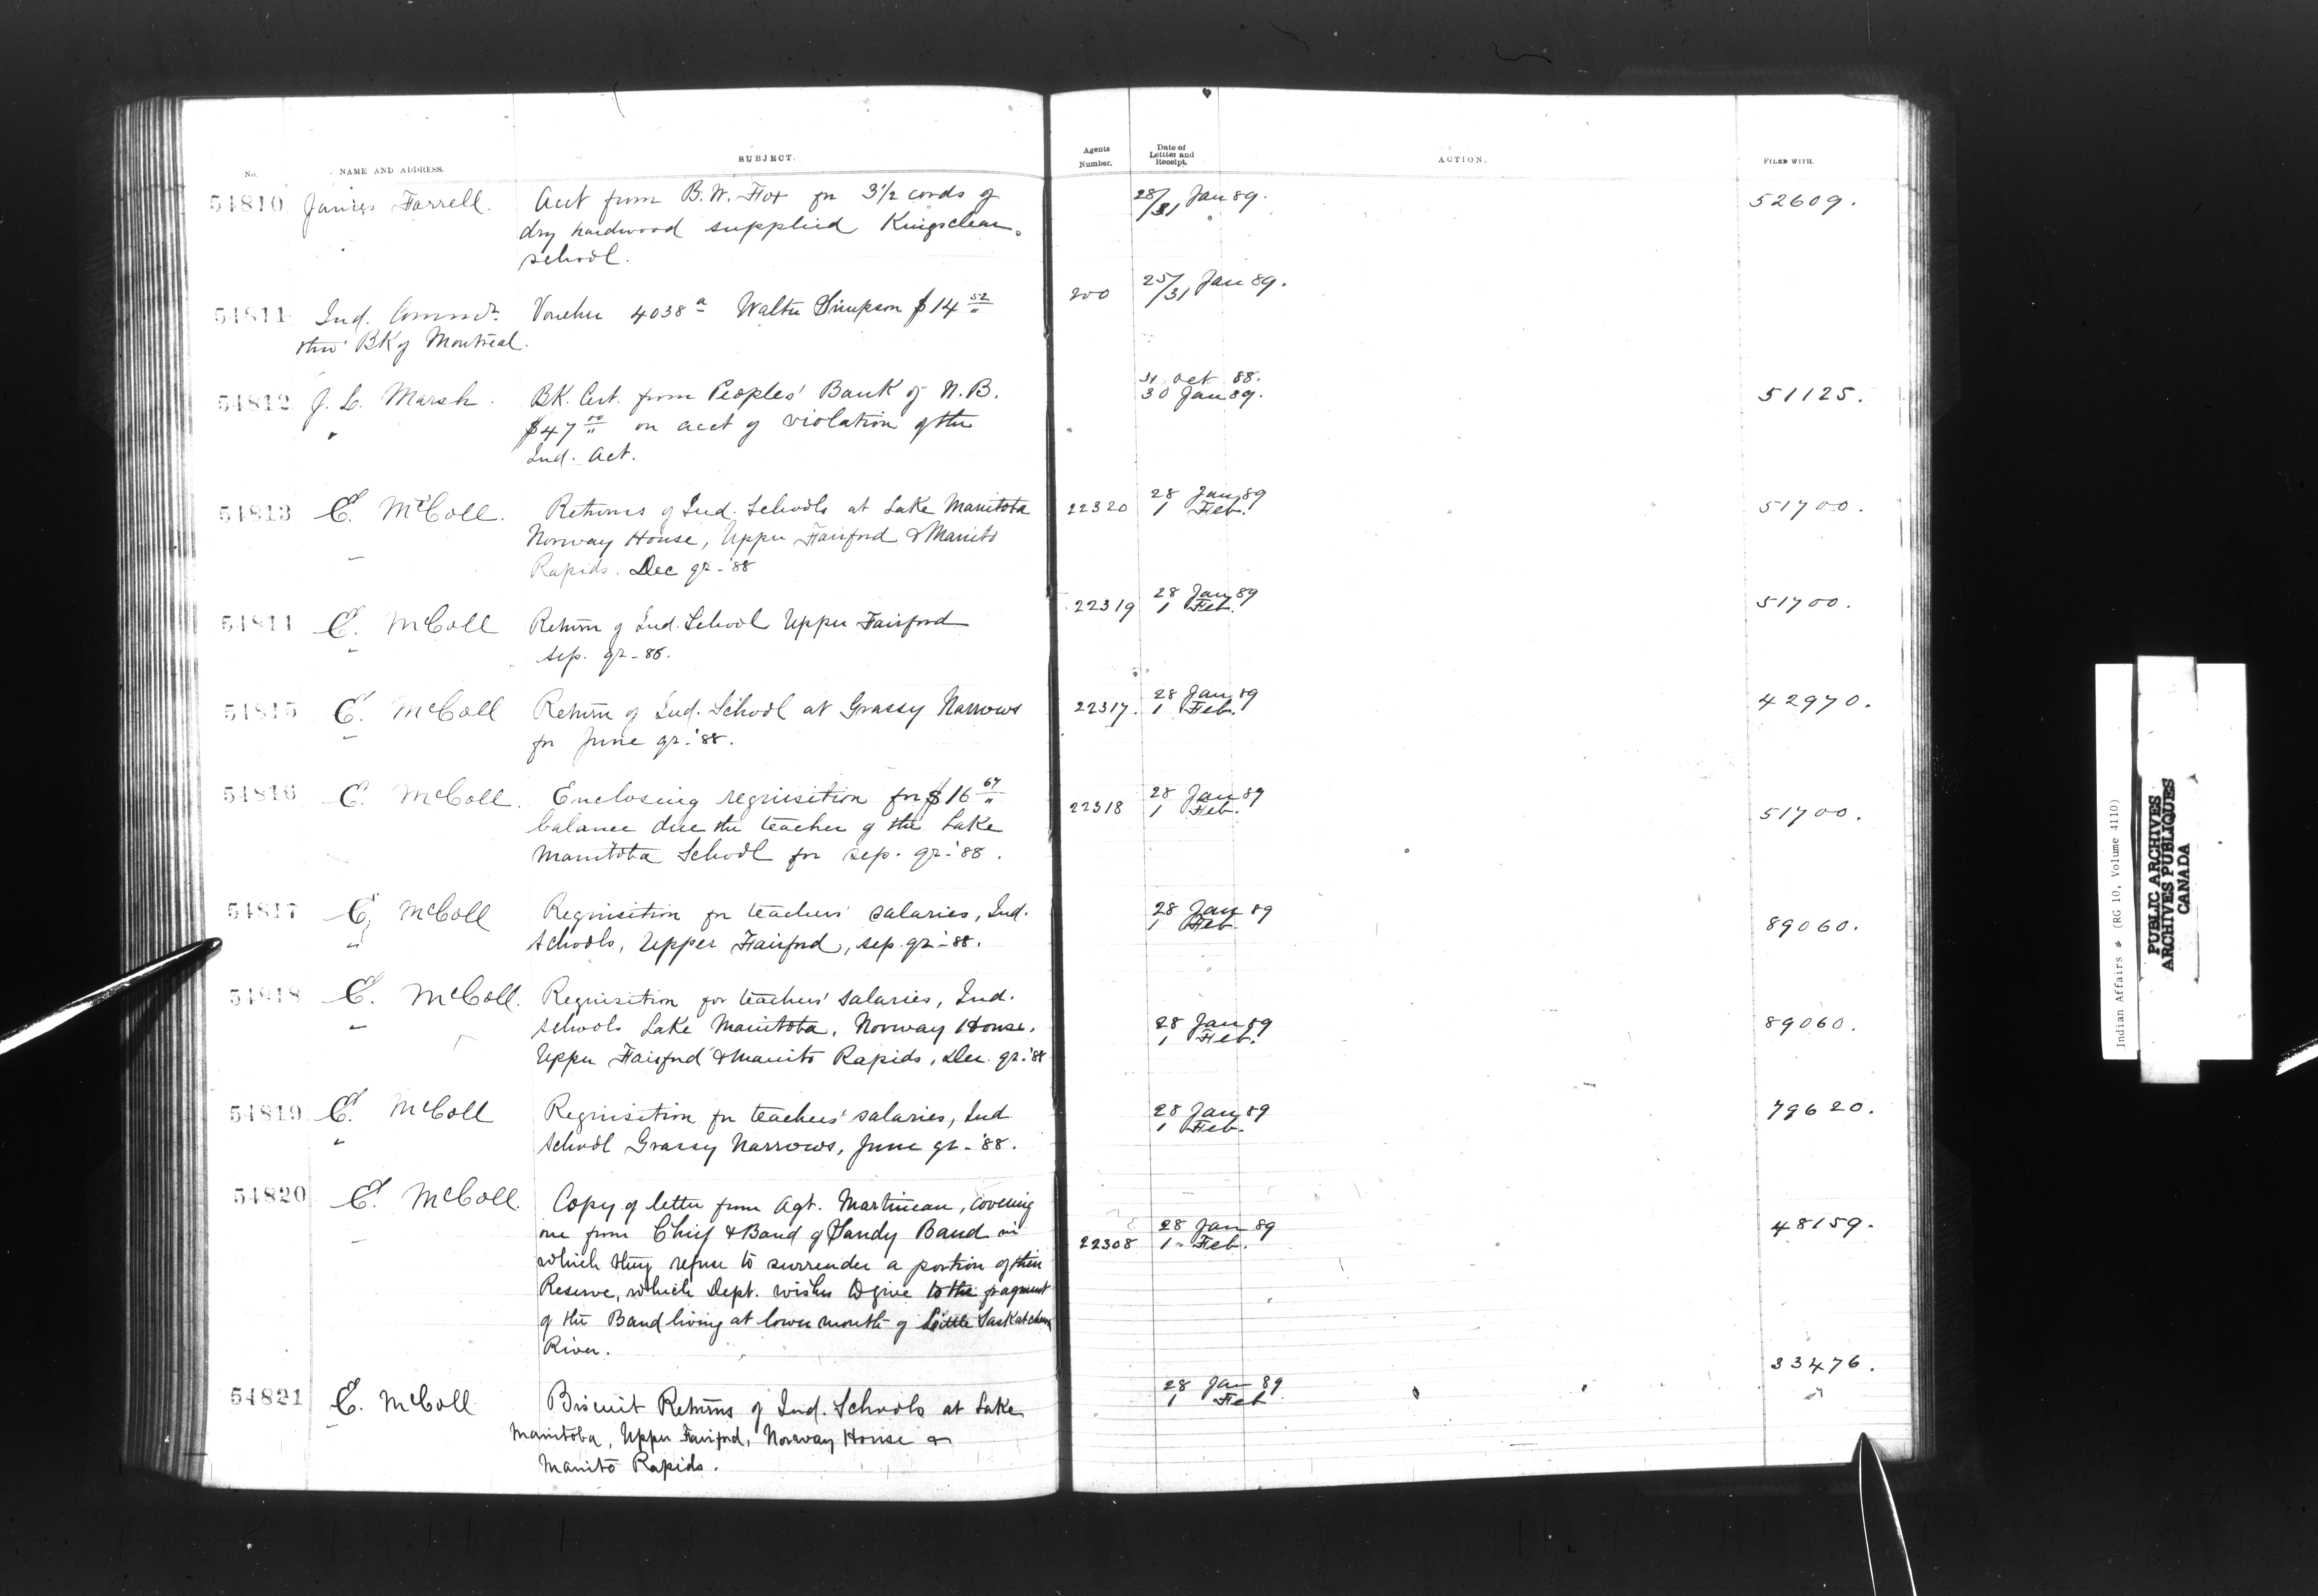 No. NAME AND ADDRESS. SUBJECT. Agents Number. Date of Letter and Receipt. ACTION. FILED WITH.
54810 James Farrell. Acct from B.W. Fox for 3 1/2 cords of 28/31 Jan 89. 52609.
dry hardwood supplied Kingsclear
school.
54811 Ind. Commr. Voucher 4038 a Walter Simpson $14 52 200 25/31 Jan 89.
thro' BK of Montreal.
54812 J. L. Marsh. BK. Cert. from Peoples' Bank of N.B. 31 Oct 88. 51125.
30 Jan 89.
$47 00 on acct of violation of the
Ind. Act.
54813 E. McColl. Returns of Ind. Schools at Lake Manitoba 22320 28 Jan 89 51700.
1 Feb.
Norway House, Upper Fairford & Manito
Rapids. Dec qr - '88
54814 E. McColl Return of Ind. School Upper Fairford 22319 28 Jan 89 51700.
1 Feb.
Sep. qr - 88.
54815 E. McColl Return of Ind. School at Grassy Narrows 22317. 28 Jan 89 42970.
1 Feb.
for June qr - '88.
54816 E. McColl. Enclosing requisition for $16 67 22318 28 Jan 89 51700.
1 Feb.
balance due the teacher of the Lake
Manitoba School for Sep. qr - '88.
54817 E. McColl Requisition for teachers' salaries, Ind. 28 Jan 89 89060.
1 Feb.
Schools, Upper Fairford, Sep. qr - '88.
54818 E. McColl. Requisition for teachers' salaries, Ind.
Schools Lake Manitoba, Norway House, 28 Jan 89 89060.
1 Feb.
Upper Fairford & Manito Rapids, Dec. qr. '88
54819 E. McColl Requisition for teachers' salaries, Ind 28 Jan 89 79620.
1 Feb.
School Grassy Narrows, June qr - '88.
54820 E. McColl. Copy of letter from Agt. Martineau, covering
one from Chief & Band of Sandy Band in 28 Jan 89 48159.
22308 1 - Feb.
which they refuse to surrender a portion of their
Reserve, which Dept. wishes to give to the fragment
of the Band living at lower mouth of Little Saskatchewan
River.
54821 E. McColl Biscuit Returns of Ind. Schools at Lake 28 Jan 89 33476.
1 Feb
Manitoba, Upper Fairford, Norway House &
Manito Rapids.
Indian Affairs (RG 10, Volume 4110)
PUBLIC ARCHIVES
ARCHIVES PUBLIQUES
CANADA